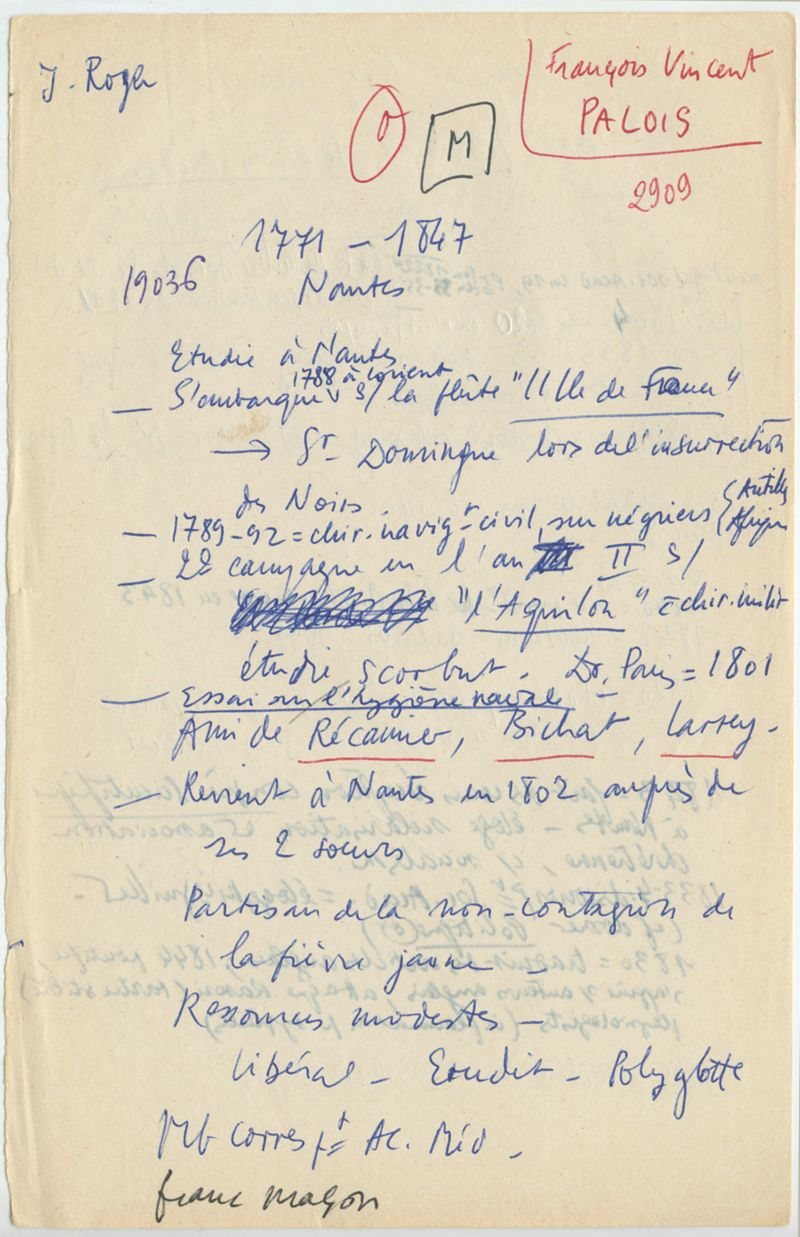 J. Roger
François Vincent
PALOIS
O
M
2909
1771 - 1847
19036
Nantes
Etudie à Nantes
1788 à Lorient
— S'embarque s/ la flûte "l'Ile de France"
→ St Domingue lors de l'insurrection
des Noirs.
— 1789-92 = chir. navigt civil, sur négriers (Antilles
(Afrique
— 2e campagne en l'an II s/
"l'Aquilon" = chir. milit
étudie scorbut. Dr. Paris = 1801
— Essai sur l'hygiène navale
Ami de Récamier, Bichat, Larrey -
— Revient à Nantes en 1802 auprès de
ses 2 soeurs
Partisan de la non-contagion de
la fièvre jaune -
Ressources modestes -
libéral - Erudit - Polyglotte
Mb corresp Ac. Méd -
franc maçon